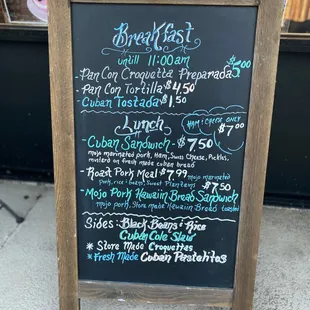 Breakfast
untill 11:00am
-Pan Con Croquetta Preparada $5.00
-Pan Con Tortilla $4.50
-Cuban Tostada $1.50
Lunch
Ham & Cheese Only $7.00
-Cuban Sandwich - $7.50
mojo marinated pork, Ham, Swiss Cheese, Pickles,
mustard on fresh made cuban bread
-Roast Pork Meal $7.99 mojo marinated
pork, rice & beans, Sweet Plantains
-Mojo Pork Hawaiin Bread Sandwich $7.50
mojo pork, Store made Hawaiin Bread toasted
Sides: Black Beans & Rice
Cuban Cole Slaw
* Store Made Croquettas
* Fresh Made Cuban Pastelitos